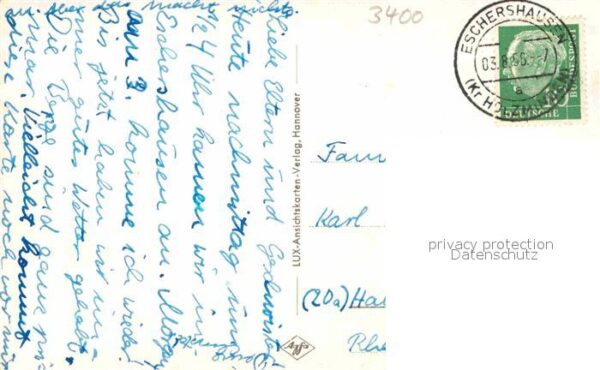 Liebe Eltern und Geschwister
Heute nachmittag um
1/2 4 Uhr kamen wir in
Eschershausen an. Morgen
am 3. komme ich wieder.
Bis jetzt haben wir im-
mer gutes Wetter gehabt.
Die
mar. Vielleicht kommt
diese Karte noch vor mir
an. Aber das macht nichts.
LUX-Ansichtskarten-Verlag, Hannover
Agfa
3400
ESCHERSHAUSEN
03.8.
a
(Kr HOLZMINDEN)
BUNDESPOST
DEUTSCHE
Fam
Karl
(20a) Ha
privacy protection
Datenschutz